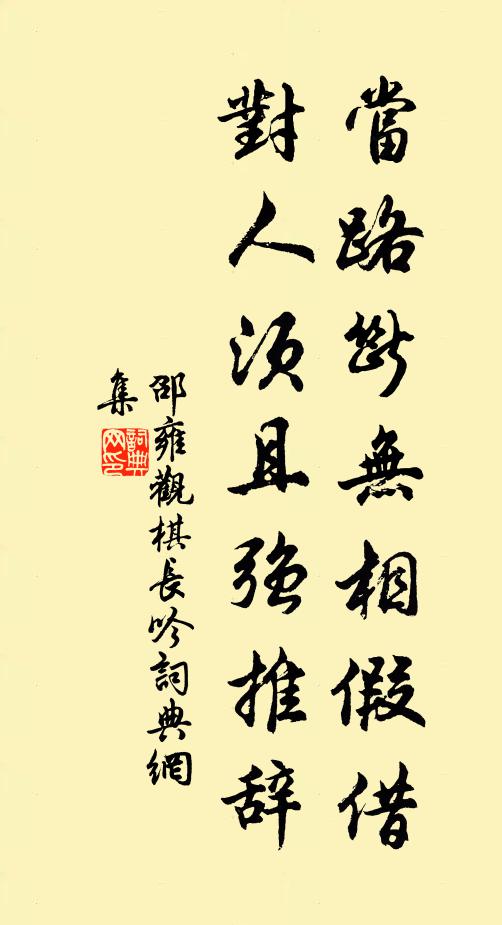 當路斷無相假借
對人須且強推辞
邵雍觀棋長吟詞典網
集
詞典網印